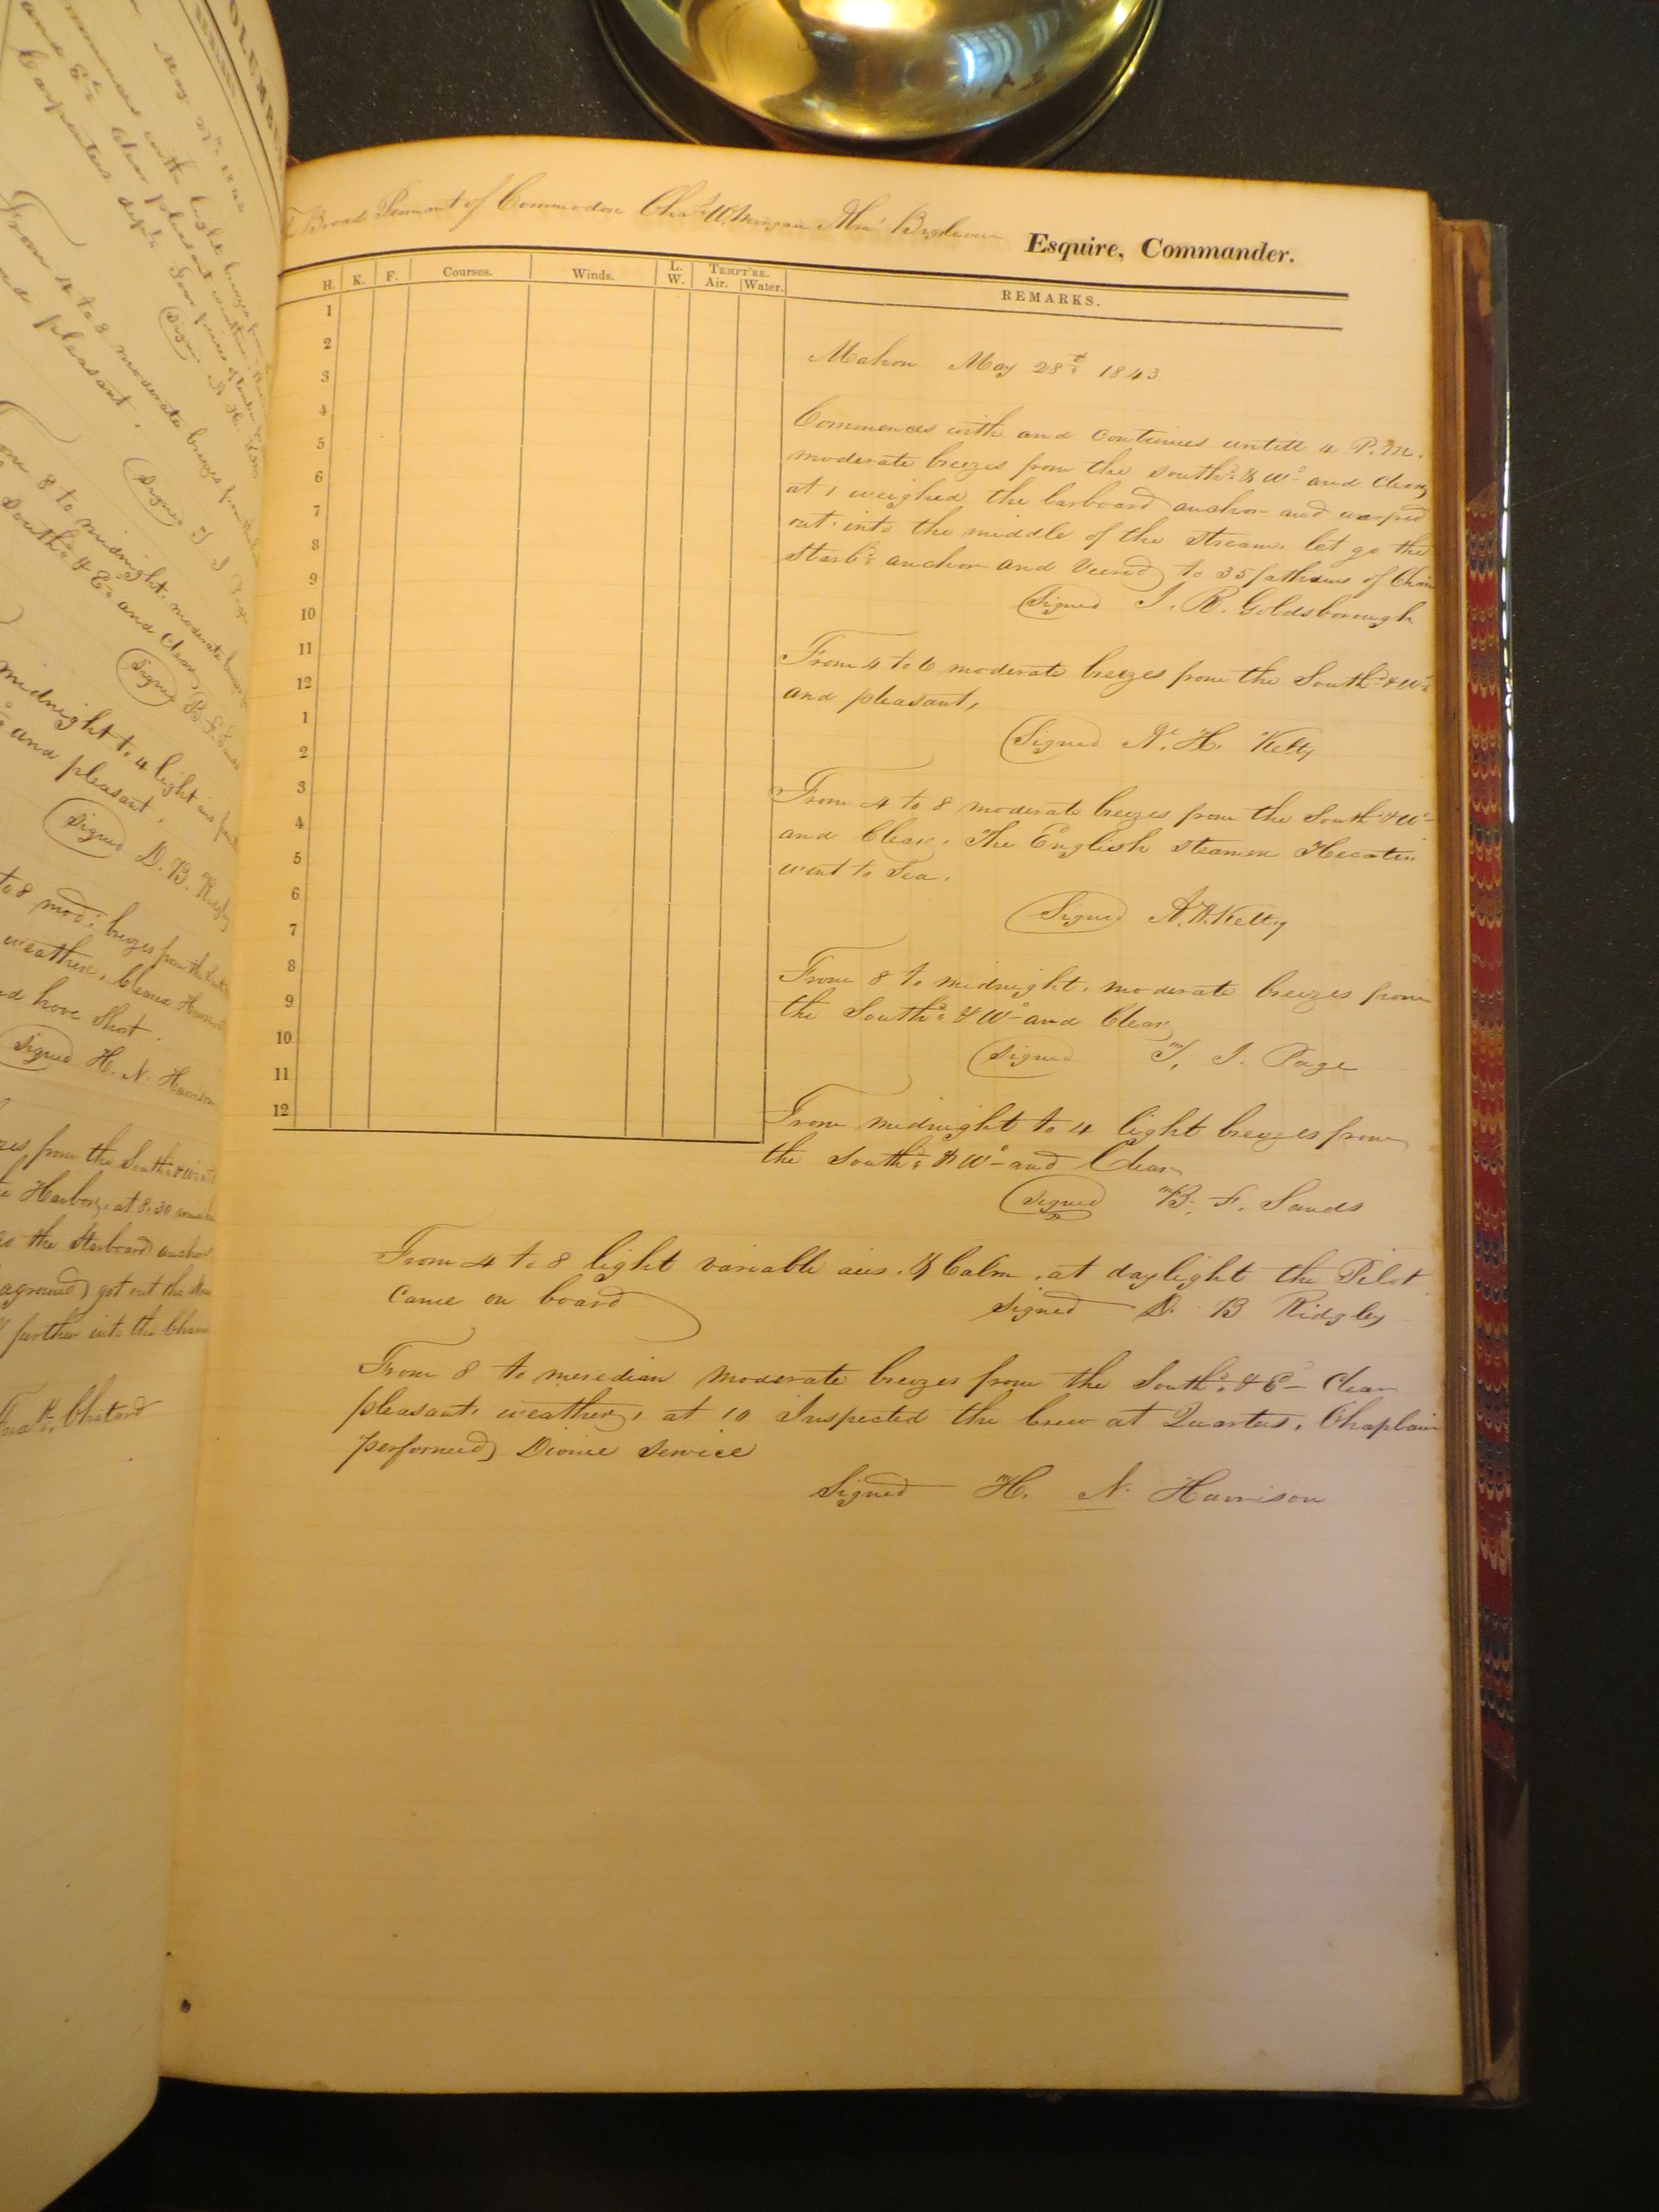 Broad Pennant of Commodore Chas W. Morgan Abm Bigelow Esquire, Commander.
H. K. F. Courses. Winds. L. W. TEMPT'RE. Air. Water. REMARKS.
1
2
3
4
5
6
7
8
9
10
11
12
1
2
3
4
5
6
7
8
9
10
11
12
Mahon May 28th 1843
Commences with and continues untill 4 P.M.
moderate breezes from the South'd & W'd and Clear,
at 1 weighed the larboard anchor and warped
out into the middle of the Stream, let go the
Starb'd anchor and veered to 35 fathoms of Chain
Signed J. R. Goldsborough
From 4 to 6 moderate breezes from the South'd & W'd
and pleasant,
Signed A. H. Kelty
From 4 to 8 moderate breezes from the South'd & W'd
and Clear, The English steamer
went to Sea.
Signed A. H. Kelty
From 8 to midnight, moderate breezes from
the South'd & W'd and Clear,
Signed T. J. Page
From midnight to 4 light breezes from
the South'd & W'd and Clear
Signed B. F. Sands
From 4 to 8 light variable airs & Calm, at daylight the Pilot
came on board Signed D. B Ridgley
From 8 to meredian moderate breezes from the South'd & E'd Clear
pleasant weather, at 10 Inspected the Crew at Quarters, Chaplain
performed Divine Service
Signed H. N. Harrison
and pleasant.
Signed D. B. Ridgley
to 8 mod: breezes from the
weather, Cleaned
hove Short.
Signed H. N. Harrison
from the South'd & W'd
Harbor, at 8.30
the Starboard anchor
aground) got out the
further into the
Chatard